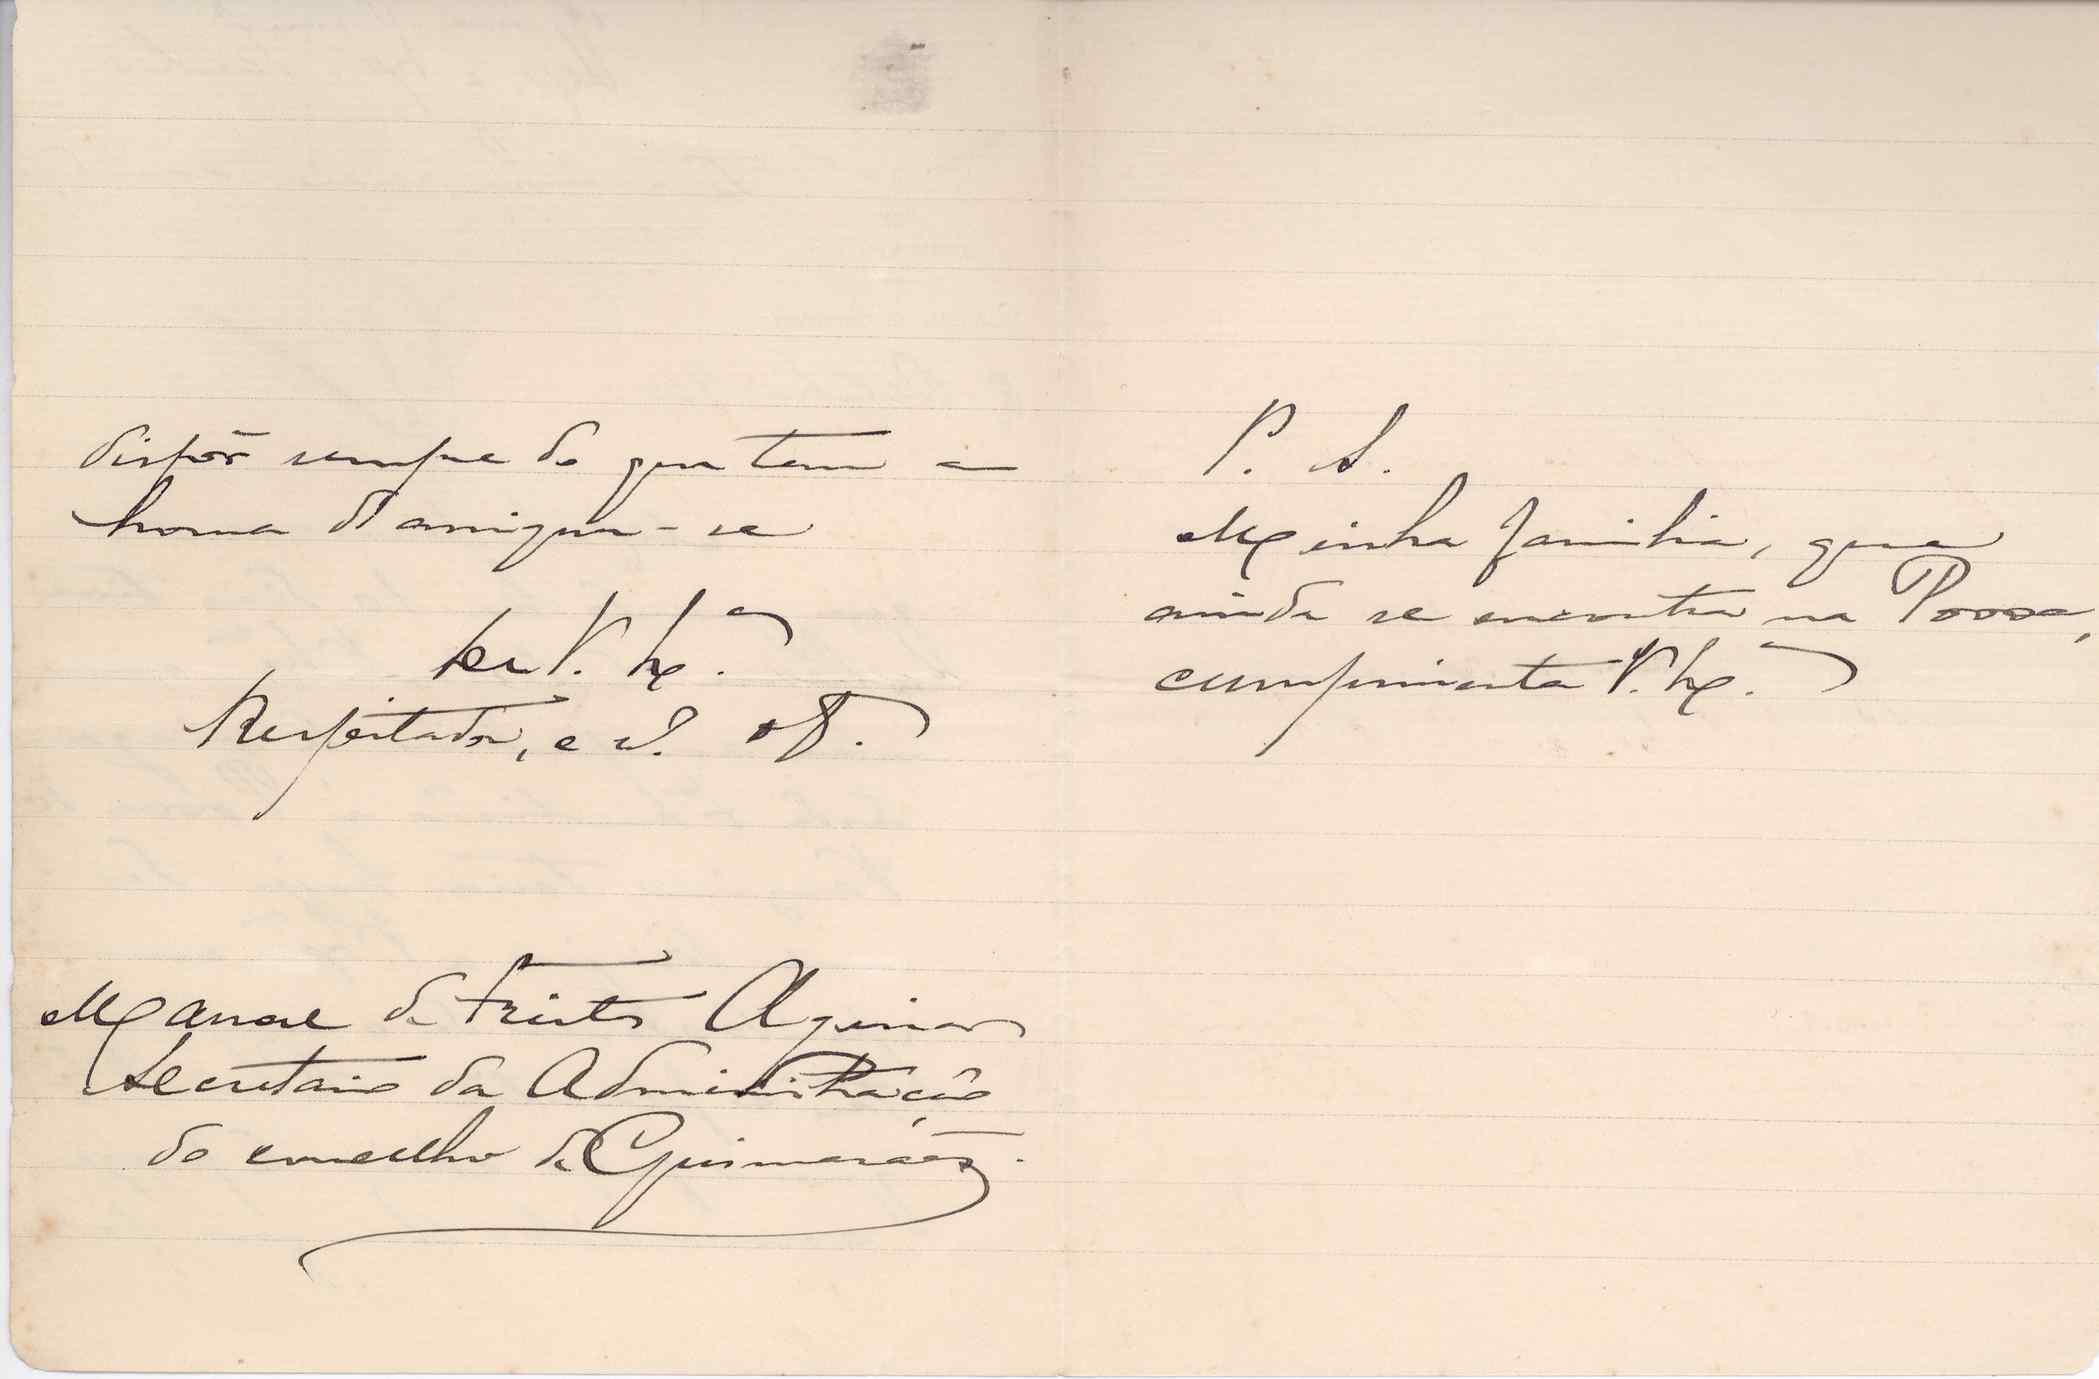 dispôr sempre do que tem a
honra d'assignar-se
De V. Ex.ª
Respeitador, e
Manoel de Freitas Aguiar
Secretario da Administração
do concelho de Guimarães.
P. S.
Minha familia, que
ainda se encontra na Povoa,
cumprimenta V. Ex.ª